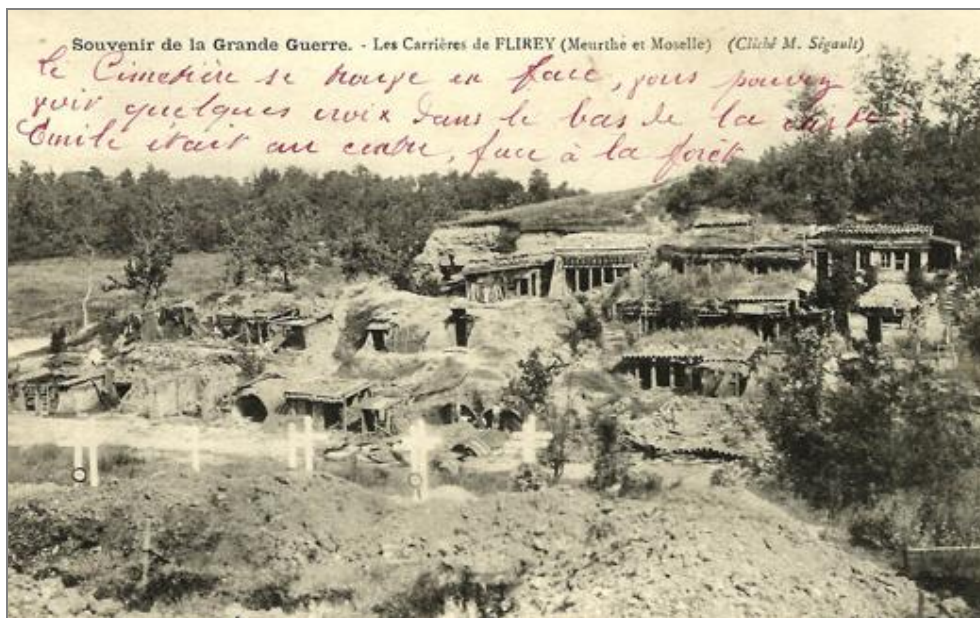 Souvenir de la Grande Guerre. - Les Carrières de FLIREY (Meurthe et Moselle) (Cliché M. Ségault)
Le Cimetière se trouve en face, vous pouvez
voir quelques croix dans le bas de la carte.
Emile était au centre, face à la forêt